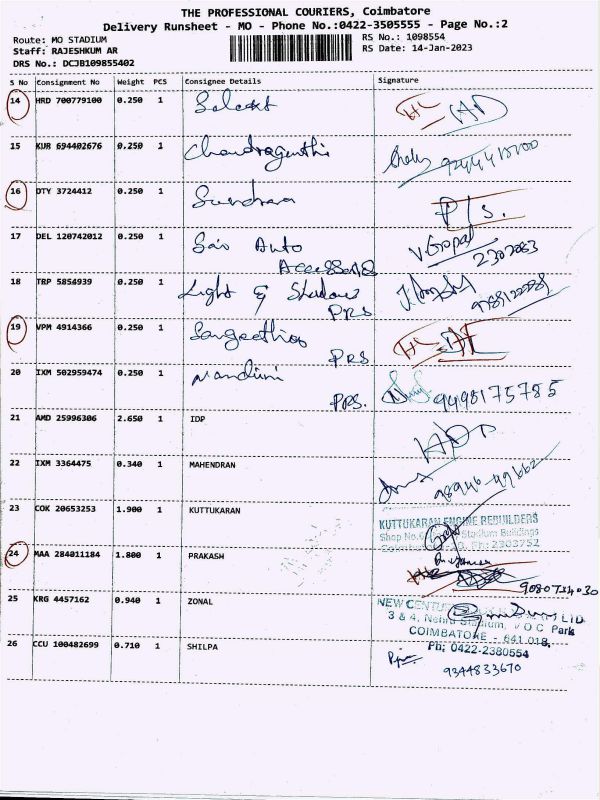 THE PROFESSIONAL COURIERS, Coimbatore
Delivery Runsheet - MO - Phone No.:0422-3505555 - Page No.:2
Route: MO STADIUM
RS No.: 1098554
Staff: RAJESHKUM AR
RS Date: 14-Jan-2023
DRS No.: DCJB109855402
S No Consignment No Weight PCS Consignee Details Signature
14 HRD 700779100 0.250 1 Select
15 KUR 694402676 0.250 1 Chandraganthi
16 DTY 3724412 0.250 1 Sundran P/s.
17 DEL 120742012 0.250 1 Sai Auto V.Gopal
Accessories 2302063
18 TRP 5854939 0.250 1 Light & Shadows
PRS
19 VPM 4914366 0.250 1 Sangeethas
PRS
20 IXM 502959474 0.250 1 Nandini
PRS. 9498175785
21 AMD 25996306 2.650 1 IDP
22 IXM 3364475 0.340 1 MAHENDRAN 98946-49662
23 COK 20653253 1.900 1 KUTTUKARAN KUTTUKARAN ENGINE REBUILDERS
Shop No. Stadium Buildings
Ph: 2303752
24 MAA 284011184 1.800 1 PRAKASH
9080734030
25 KRG 4457162 0.940 1 ZONAL NEW CENTURY LTD
3 & 4, Nehru Stadium, V O C Park
COIMBATORE - 641 018,
26 CCU 100482699 0.710 1 SHILPA Ph: 0422-2380554
9344833670